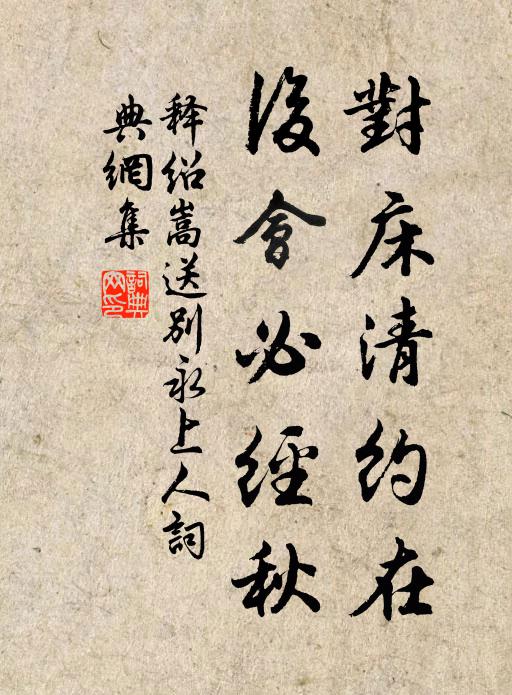 對床清約在
後會必經秋
释绍嵩送别永上人詞
典網集
詞典
网印